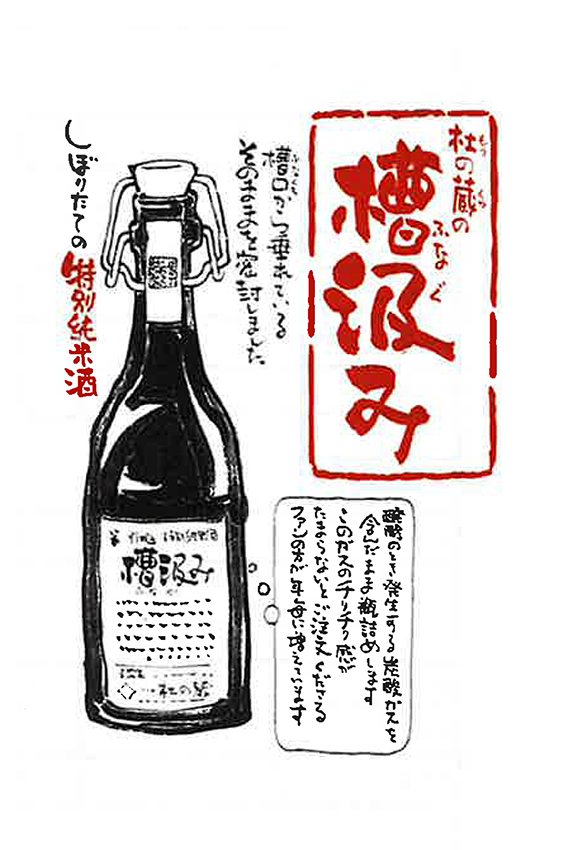 杜の蔵の
もり くら
槽汲み
ふなぐ
槽口から垂れている
ふなくち
そのままを密封しました。
しぼりたての特別純米酒
醗酵のとき発生する炭酸ガスを
含んだまま瓶詰めします
このガスのチリチリ感が
たまらないとご注文くださる
ファンの方が年毎に増えています
槽汲み
杜の蔵